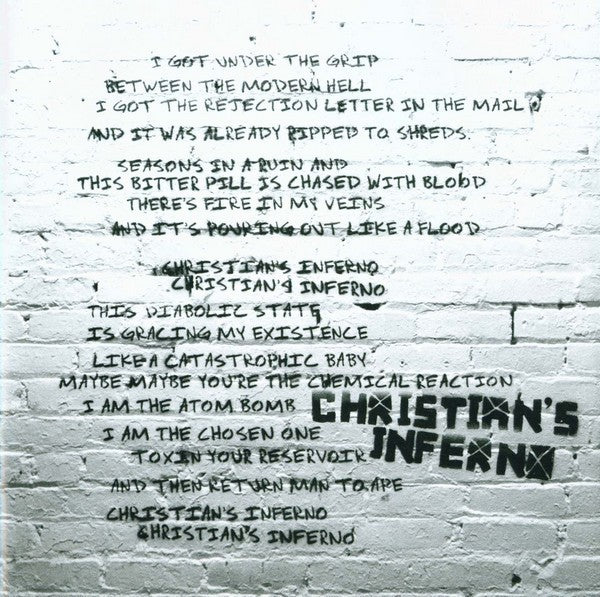 I GOT UNDER THE GRIP
BETWEEN THE MODERN HELL
I GOT THE REJECTION LETTER IN THE MAIL
AND IT WAS ALREADY RIPPED TO SHREDS.
SEASONS IN A RUIN AND
THIS BITTER PILL IS CHASED WITH BLOOD
THERE'S FIRE IN MY VEINS
AND IT'S POURING OUT LIKE A FLOOD
CHRISTIAN'S INFERNO
CHRISTIAN'S INFERNO
THIS DIABOLIC STATE
IS GRACING MY EXISTENCE
LIKE A CATASTROPHIC BABY
MAYBE MAYBE YOU'RE THE CHEMICAL REACTION
I AM THE ATOM BOMB
I AM THE CHOSEN ONE
TOXIN YOUR RESERVOIR
AND THEN RETURN MAN TO APE
CHRISTIAN'S INFERNO
CHRISTIAN'S INFERNO
CHRISTIAN'S
INFERNO